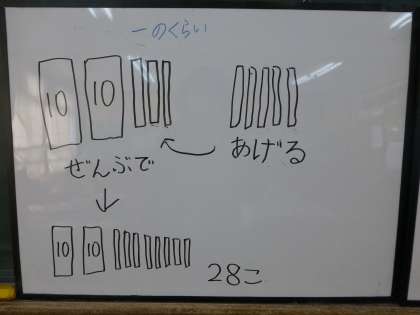 一のくらい
10 10
あげる
ぜんぶで
10 10
28こ